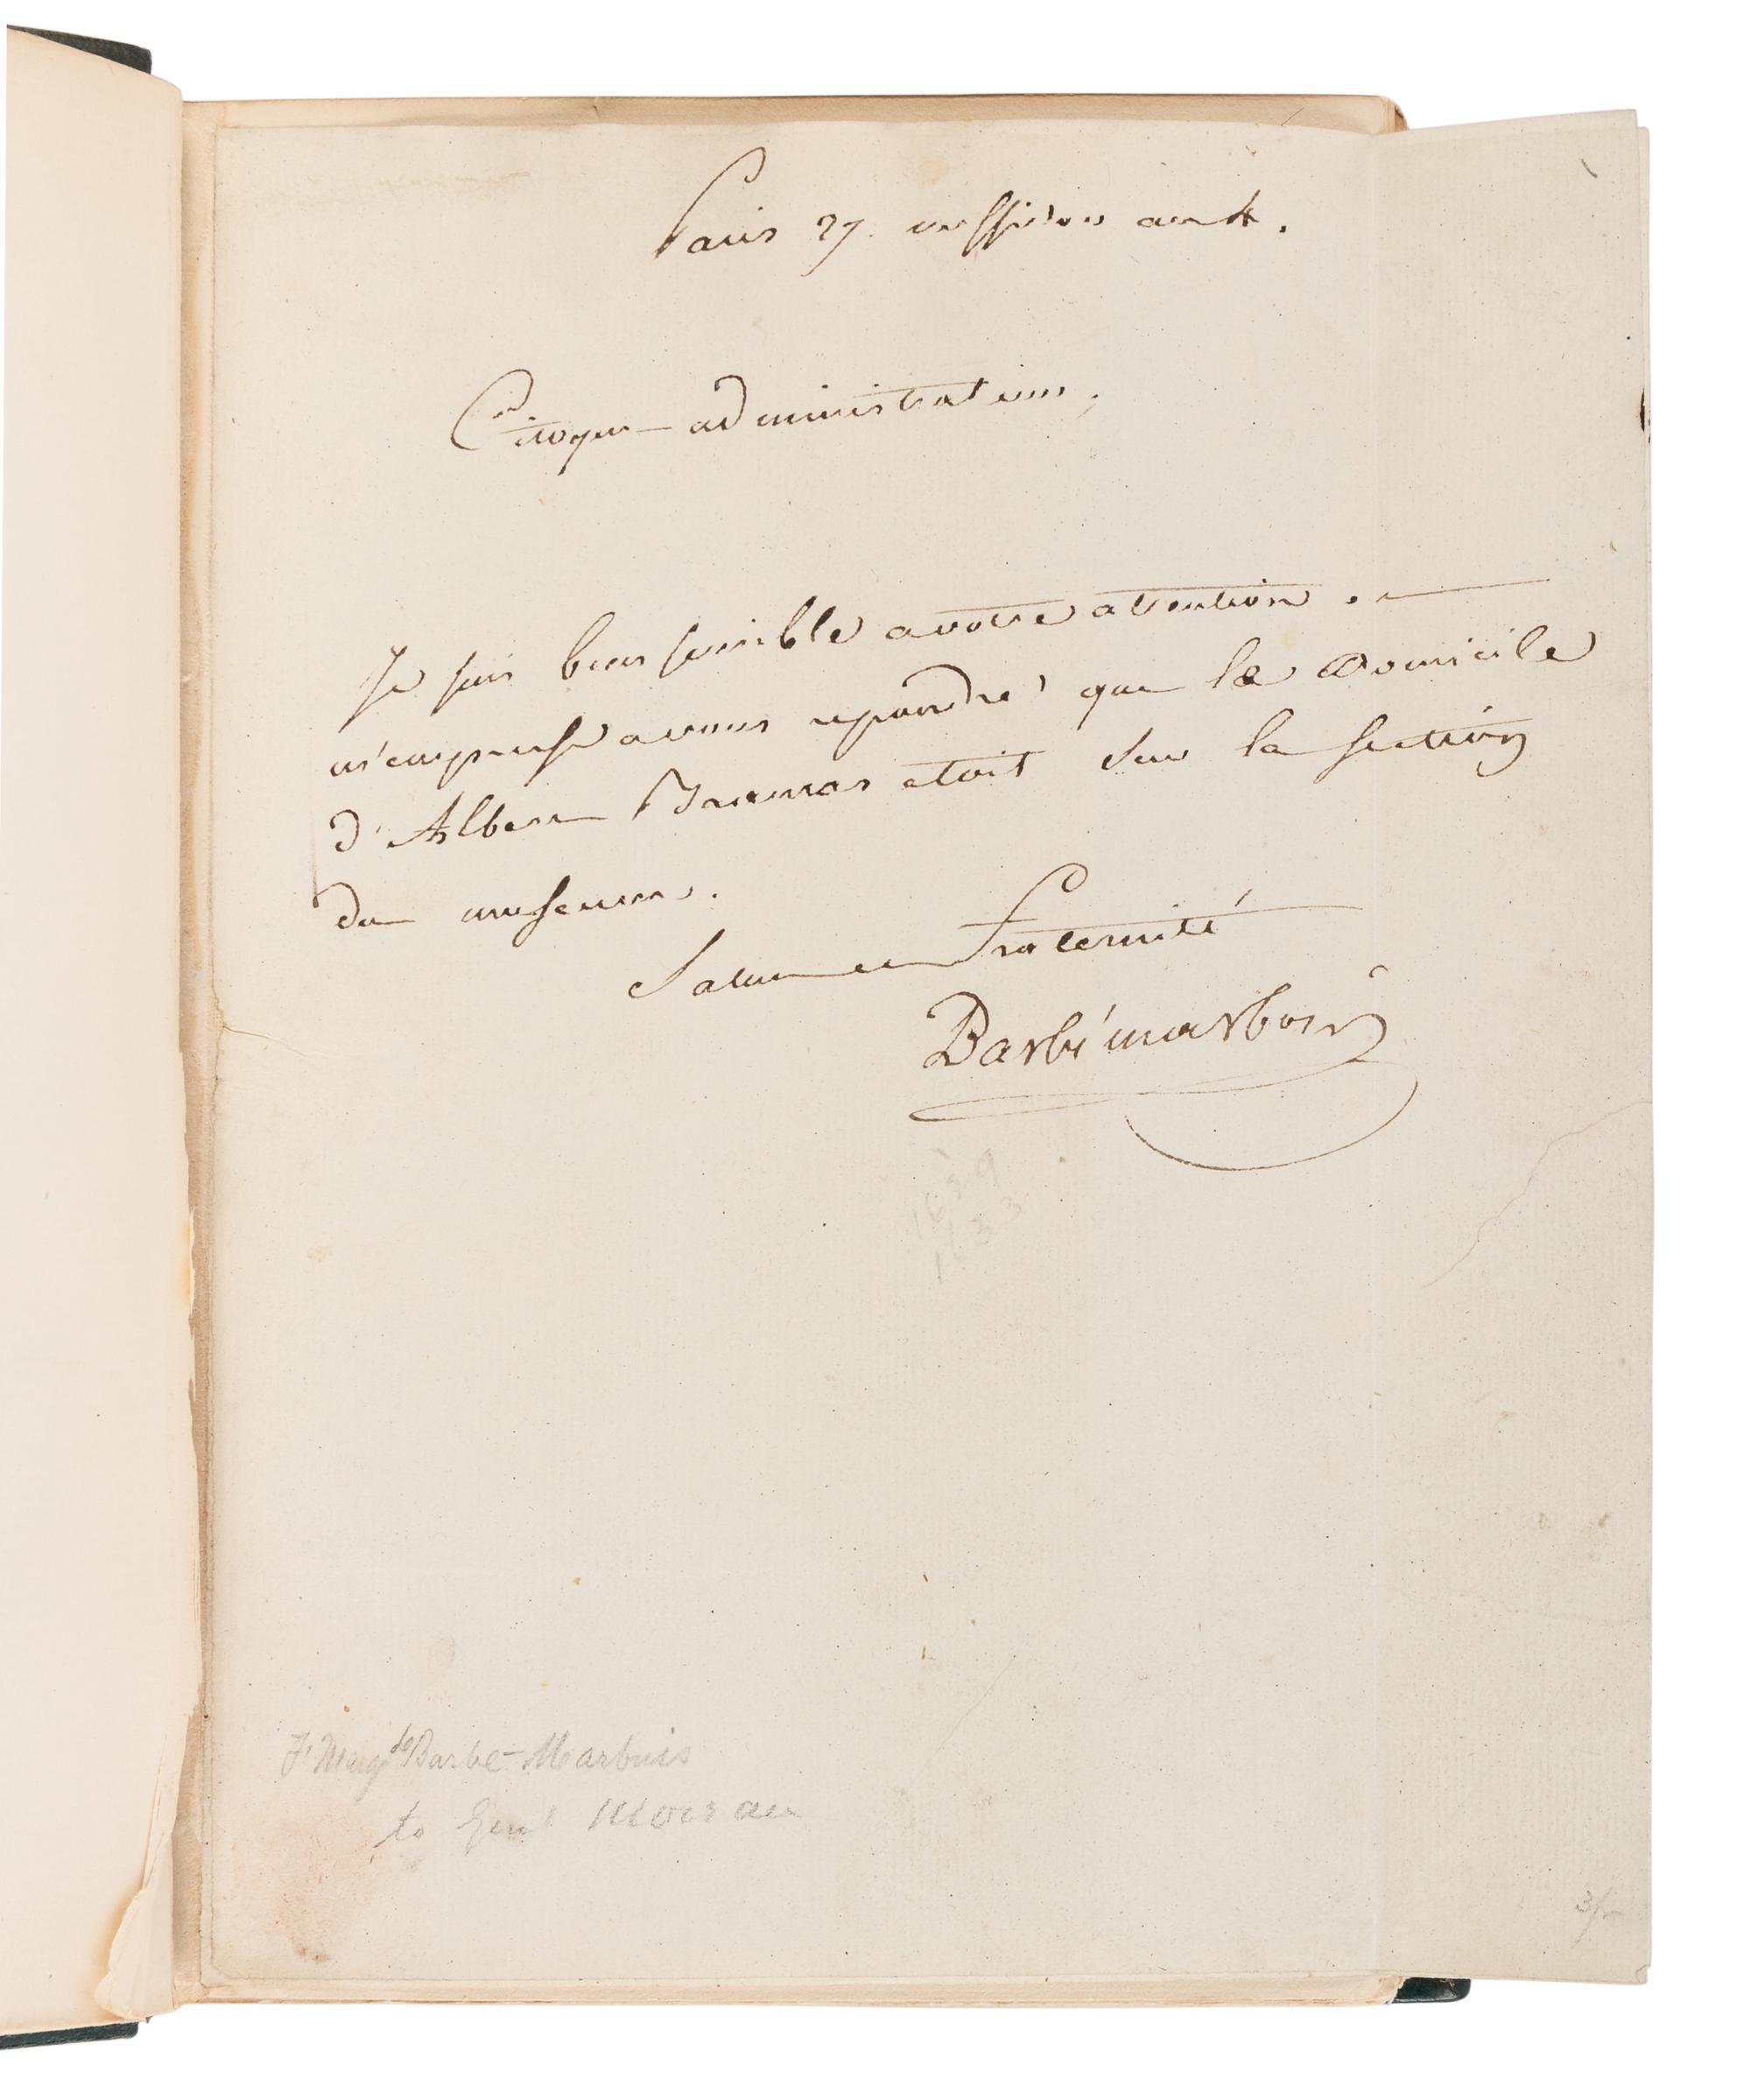 Paris 27. messidor an 4.
Citoyen administrateur,
Je suis bien sensible a votre attention. —
m'empresse a vous repondre que le Domicile
d'Albert étoit sur la section
du museum.
Salut et Fraternité
Barbé marbois
1639
1633
de Barbe-Marbois
to Genl Moreau